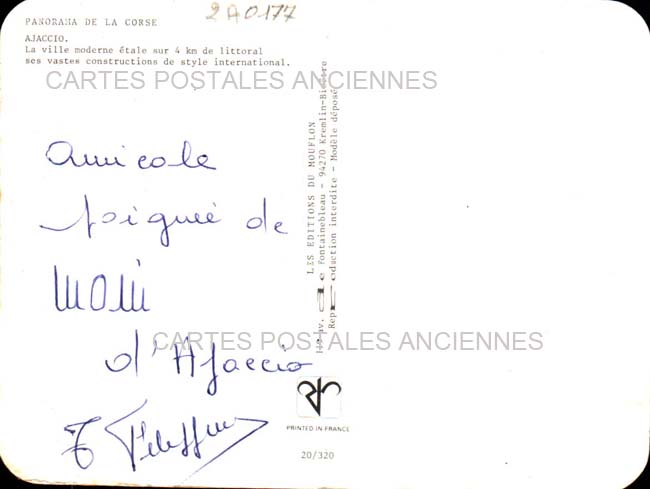 2A0177
PANORAMA DE LA CORSE
AJACCIO.
La ville moderne étale sur 4 km de littoral
ses vastes constructions de style international.
CARTES POSTALES ANCIENNES
amicale
poignée de
main
d'Ajaccio
LES EDITIONS DU MOUFLON
Fontainebleau - 94270 Kremlin-Bicêtre
Reproduction interdite - Modèle déposé
CARTES POSTALES ANCIENNES
PRINTED IN FRANCE
20/320